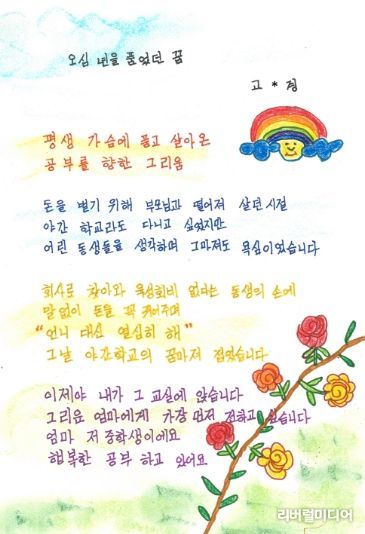 오십 년을 품었던 꿈
고 * 정
평생 가슴에 품고 살아온
공부를 향한 그리움
돈을 벌기 위해 부모님과 떨어져 살던 시절
야간 학교라도 다니고 싶었지만
어린 동생들을 생각하며 그마저도 욕심이었습니다
회사로 찾아와 육성회비 없다는 동생의 손에
말없이 돈을 꼭 쥐어주며
"언니 대신 열심히 해"
그날 야간학교의 꿈마저 접었습니다
이제야 내가 그 교실에 앉습니다
그리운 엄마에게 가장 먼저 전하고 싶습니다
엄마 저 중학생이에요
행복한 공부 하고 있어요
리버럴미디어